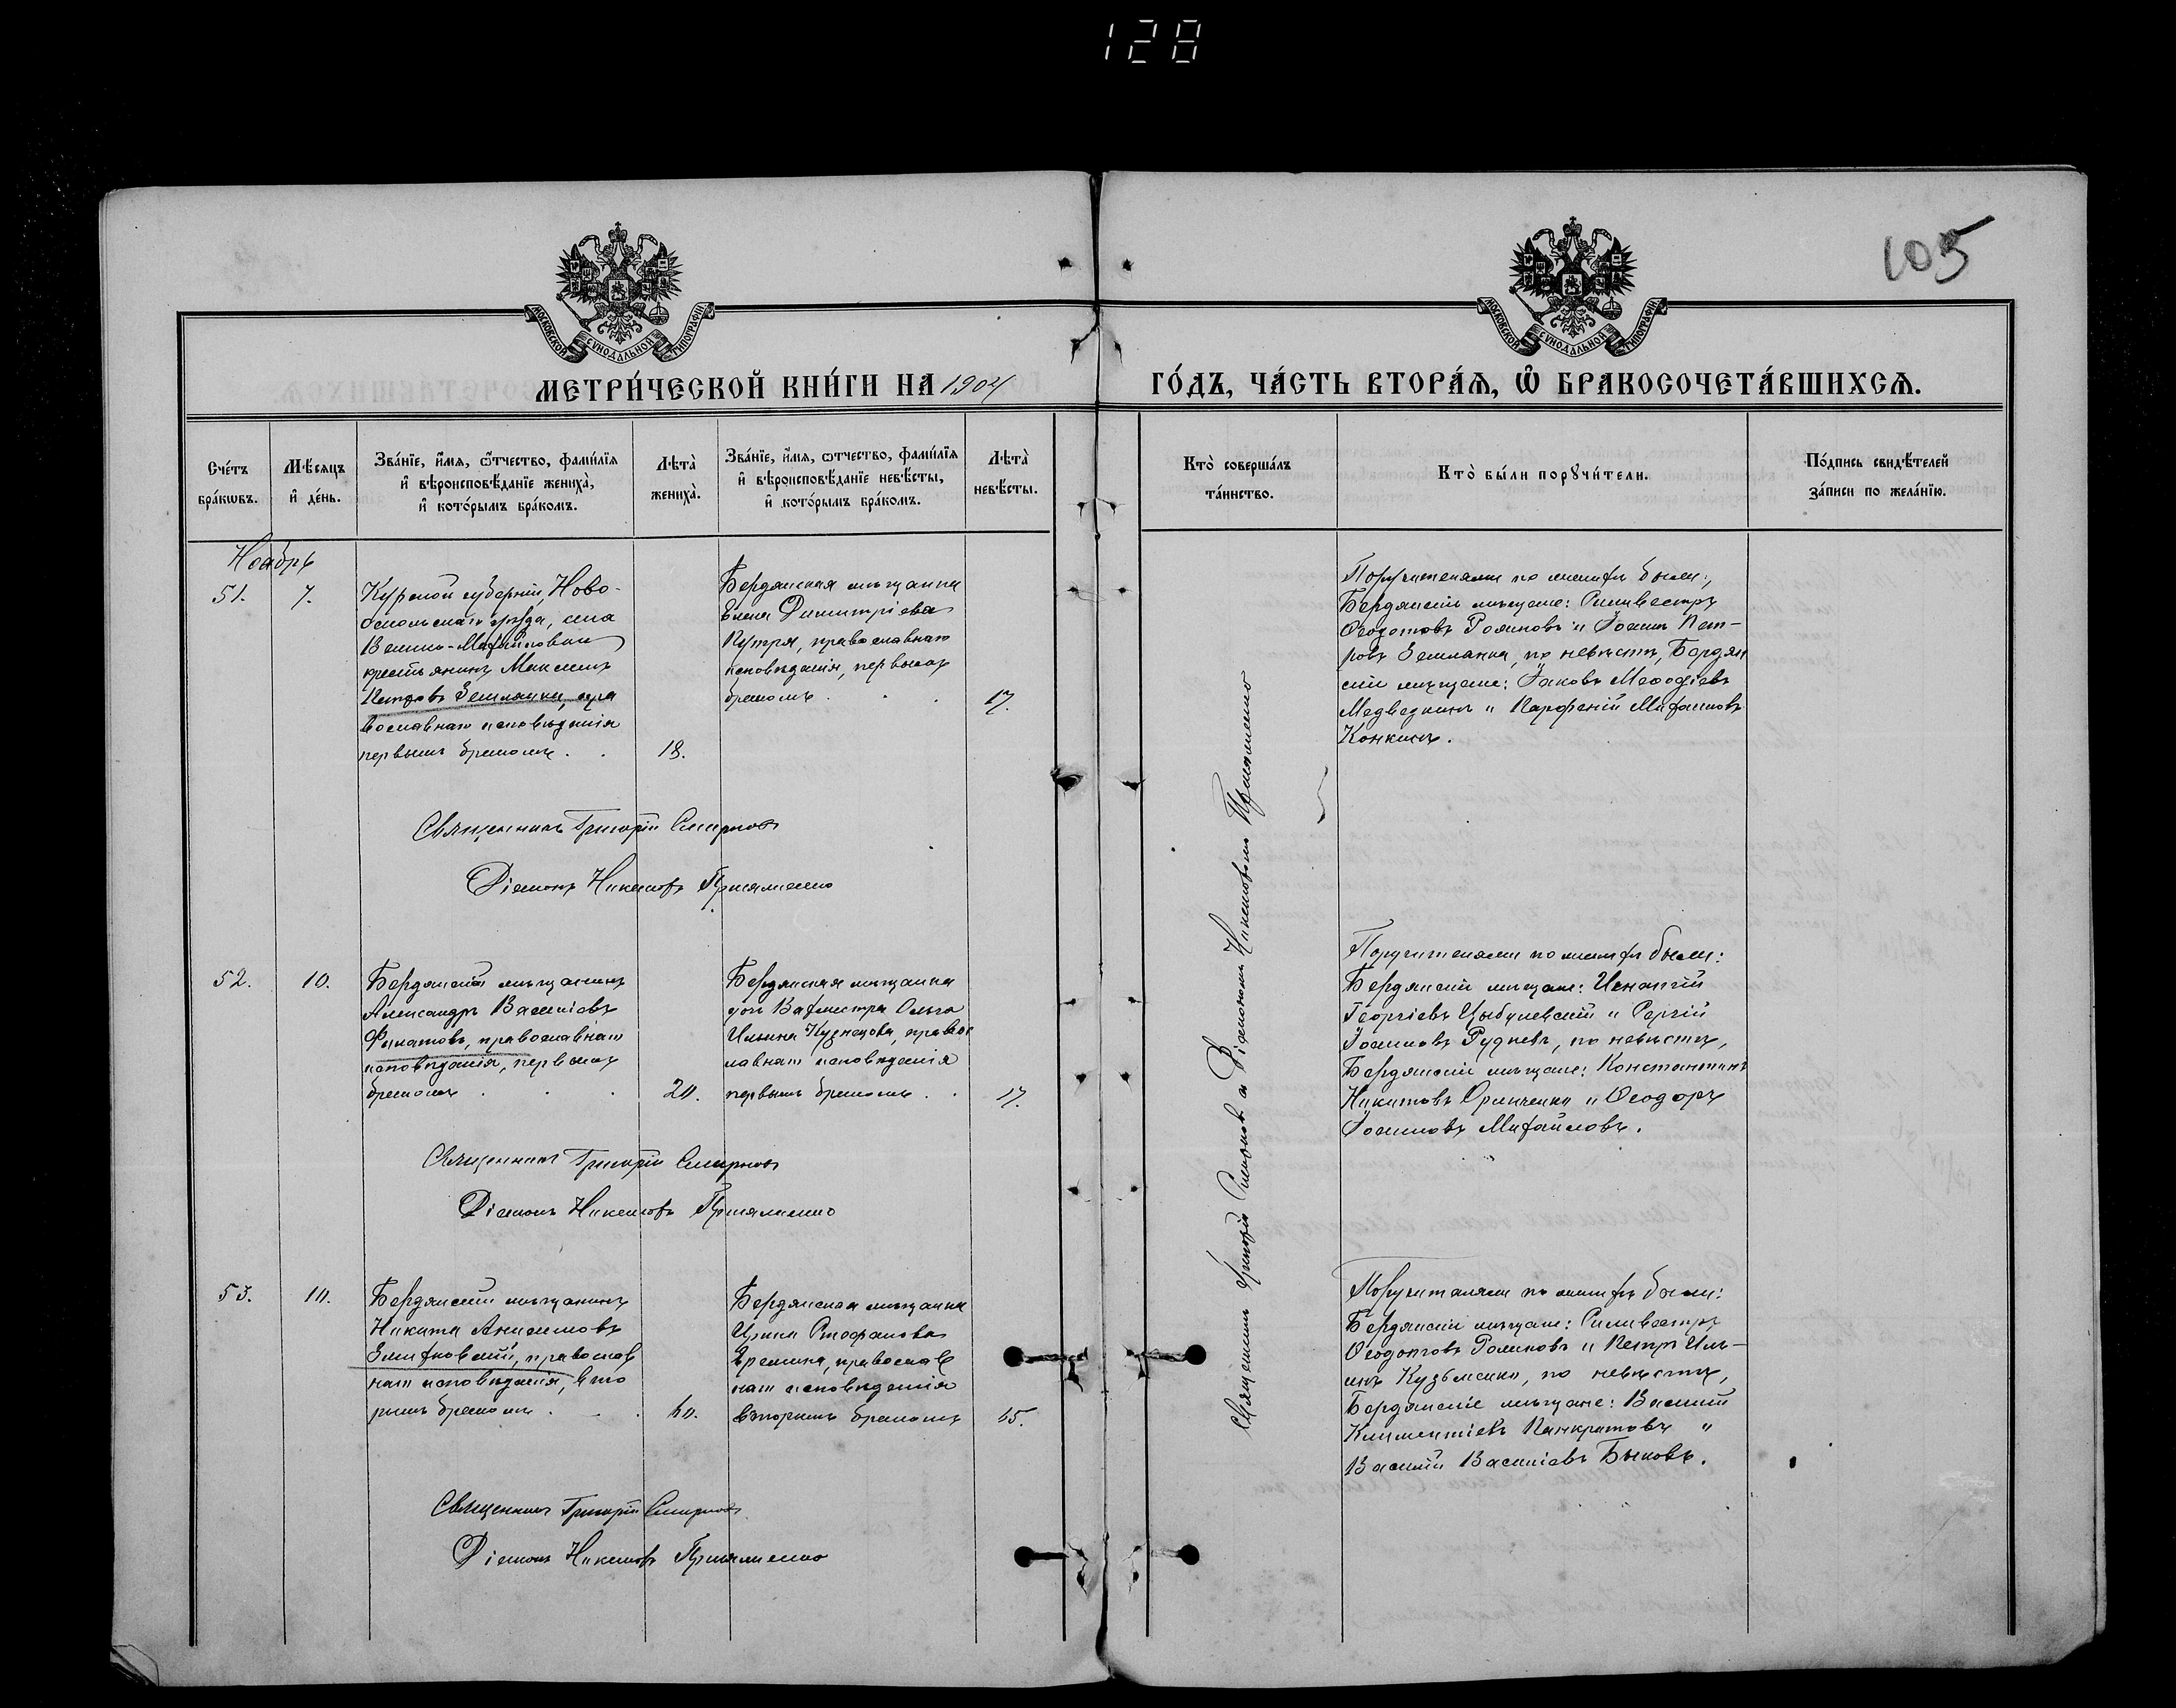 128
105
МОСКОВСКОЙ СѴНОДАЛЬНОЙ ТИПОГРАФІИ
МОСКОВСКОЙ СѴНОДАЛЬНОЙ ТИПОГРАФІИ
МЕТРИ́ЧЕСКОЙ КНИ́ГИ НА 1904 ГО́ДЪ, ЧА́СТЬ ВТОРА́Я, Ѡ БРАКОСОЧЕТА́ВШИХСЯ.
Сче́тъ бра́кѡвъ.
Мѣ́сяцъ и де́нь.
Зва́нїе, и́мя, ѻ́тчество, фами́лїя
и вѣроисповѣ́данїе жениха̀,
и кото́рымъ бра́комъ.
Лѣта̀ жениха̀.
Зва́нїе, и́мя, ѻтчество, фами́лїя
и вѣроисповѣ́данїе невѣ́сты,
и кото́рымъ бра́комъ.
Лѣта̀ невѣ́сты.
Кто̀ соверша́лъ та́инство.
Кто̀ бы́ли порꙋчи́тели.
По́дпись свидѣ́телей
за́писи по жела́нїю.
Ноябрь
51.
7.
Курской губерніи, Ново-
оскольскаго уѣзда, села
Велико-Михайловки
крестьянинъ Максимъ
Петровъ Землянки, пра
вославнаго исповѣданія
первымъ бракомъ . .
18.
Бердянская мѣщанка
Елена Димитріева
Путря, православнаго
исповѣданія, первымъ
бракомъ . .
17.
Поручителями по женихѣ были:
Бердянскіе мѣщане: Сильвестръ
Ѳеодотовъ Поляковъ и Іоаннъ Пет-
ровъ Землянки, по невѣстѣ, Бердян
скіе мѣщане: Іаковъ Меѳодіевъ
Медведкинъ и Парфеній Михаиловъ
Конкинъ.
Священникъ Григорій Смирновъ
Діаконъ Никаноръ
52.
10.
Бердянскій мѣщанинъ
Александръ Василіевъ
Филатовъ, православнаго
исповѣданія, первымъ
бракомъ . . .
20.
Бердянская мѣщанка
дочь Вахмистра Ольга
Ильина Кузнецова, право
славнаго исповѣданія
первымъ бракомъ . .
17.
Поручителями по женихѣ были:
Бердянскіе мѣщане:
Георгіевъ Цыбулевскій и Сергій
Іоанновъ Рудневъ, по невѣстѣ,
Бердянскіе мѣщане: Константинъ
Никитовъ и Ѳеодоръ
Іоанновъ Михайловъ.
Священникъ Григорій Смирновъ
Діаконъ Никаноръ
53.
10.
Бердянскій мѣщанинъ
Никита Анисимовъ
православ
наго исповѣданія, вто
рымъ бракомъ . . .
60.
Бердянская мѣщанка
Ирина Стефанова
Еремина, православ
наго исповѣданія
вторымъ бракомъ
45.
Поручителями по женихѣ были:
Бердянскіе мѣщане: Сильвестръ
Ѳеодотовъ Поляковъ и Петръ Иль-
инъ Кузьменко, по невѣстѣ,
Бердянскіе мѣщане: Василій
Климентіевъ Панкратовъ и
Василій Василіевъ Быковъ.
Священникъ Григорій Смирновъ
Діаконъ Никаноръ
Священникъ Григорій Смирновъ и Діакономъ Никаноромъ